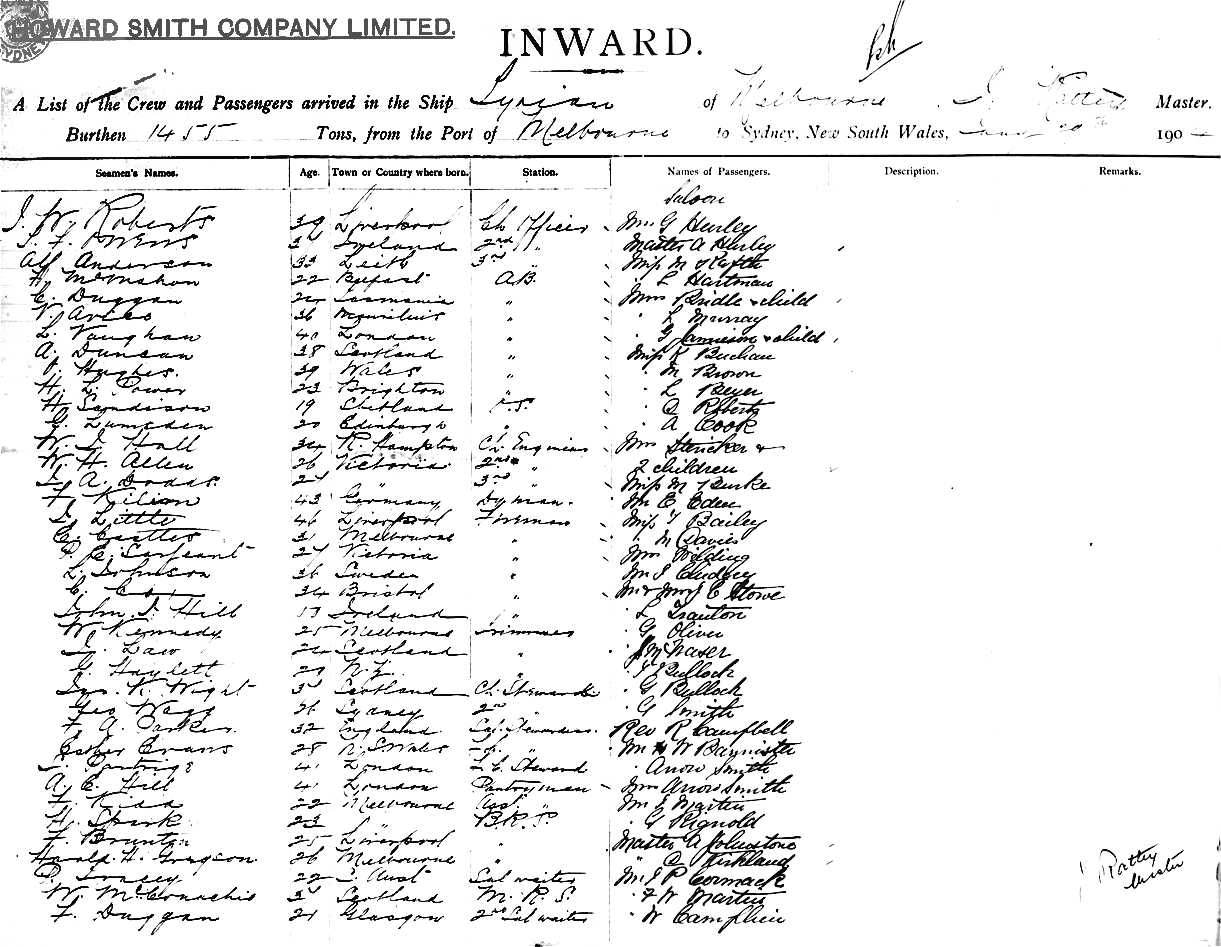 HOWARD SMITH COMPANY LIMITED.
INWARD.
A List of the Crew and Passengers arrived in the Ship Syrian of Melbourne, Master.
Burthen 1455 Tons, from the Port of Melbourne to Sydney, New South Wales, 190
Seamen's Names. Age. Town or Country where born. Station. Names of Passengers. Description. Remarks.
Saloon
J. W. Roberts 39 Liverpool Ch Officer Mrs G Hurley
J. F. Owens Ireland 2nd " Master A Hurley
Alf Anderson 33 Leith 3rd " Miss M
H. McMahon 22 Belfast A.B. " L Hartman
C. Duggan 24 Tasmania " Mrs Bridle & child
36 Mauritius " " L Murray
L. Vaughan 40 London " " G Jamieson & child
A. Duncan 38 Scotland " Miss K Buchan
J. Hughes. 39 Wales " " M Brown
H. L. Power 23 Brighton " " L Beyer
H. Sandison 19 Shetland O.S. " Roberts
G. Lumsden 20 Edinburgh " " A Cook
W. J Hall 34 R. Hampton Ch. Engineer Mrs Stricker &
W. H. Allen 26 Victoria 2nd " 2 children
A. Dodds. 27 " 3rd " Miss M Burke
F. Kilian 43 Germany Dyman. Mr E Eden
J. Little 46 Liverpool Fireman Miss Bailey
C. Castles 31 Melbourne " " M Davies
P. C. Sargeant 27 Victoria " Mrs Wilding
L. Johnson 36 Sweden " Mr J
C. Cox 34 Bristol " Mr & Mrs C Stowe
John J. Hill Ireland " " L
W. Kennedy 25 Melbourne Trimmer " G Oliver
J. Law 24 Scotland "
G. Haylett 29 N.Z. " " J Bullock
Jas. K. Wight Scotland Ch. Steward " G Bullock
Geo Wagg 26 Sydney 2nd " " G Smith
F. A. Parker 32 England Rev R Campbell
Esther Evans 28 N. S Wales " Mr W Bannister
41 London Steward " Arrowsmith
A. C. Hill 41 London Pantryman Mrs Arrowsmith
F. Kidd 22 Melbourne Asst. " Mr J Martin
H. Stark 23 " " G Rignold
F. Brunton 25 Liverpool " Master A Johnstone
Harold H. Gregson 26 Melbourne " " Kirkland
P. Tracey 22 S. Aust Sal waiter Mr J P Cormack
W. McConachie Scotland M. R. S. " F W Martin
F. Duggan 21 Glasgow 2nd Sal waiter " W Camplin
Master